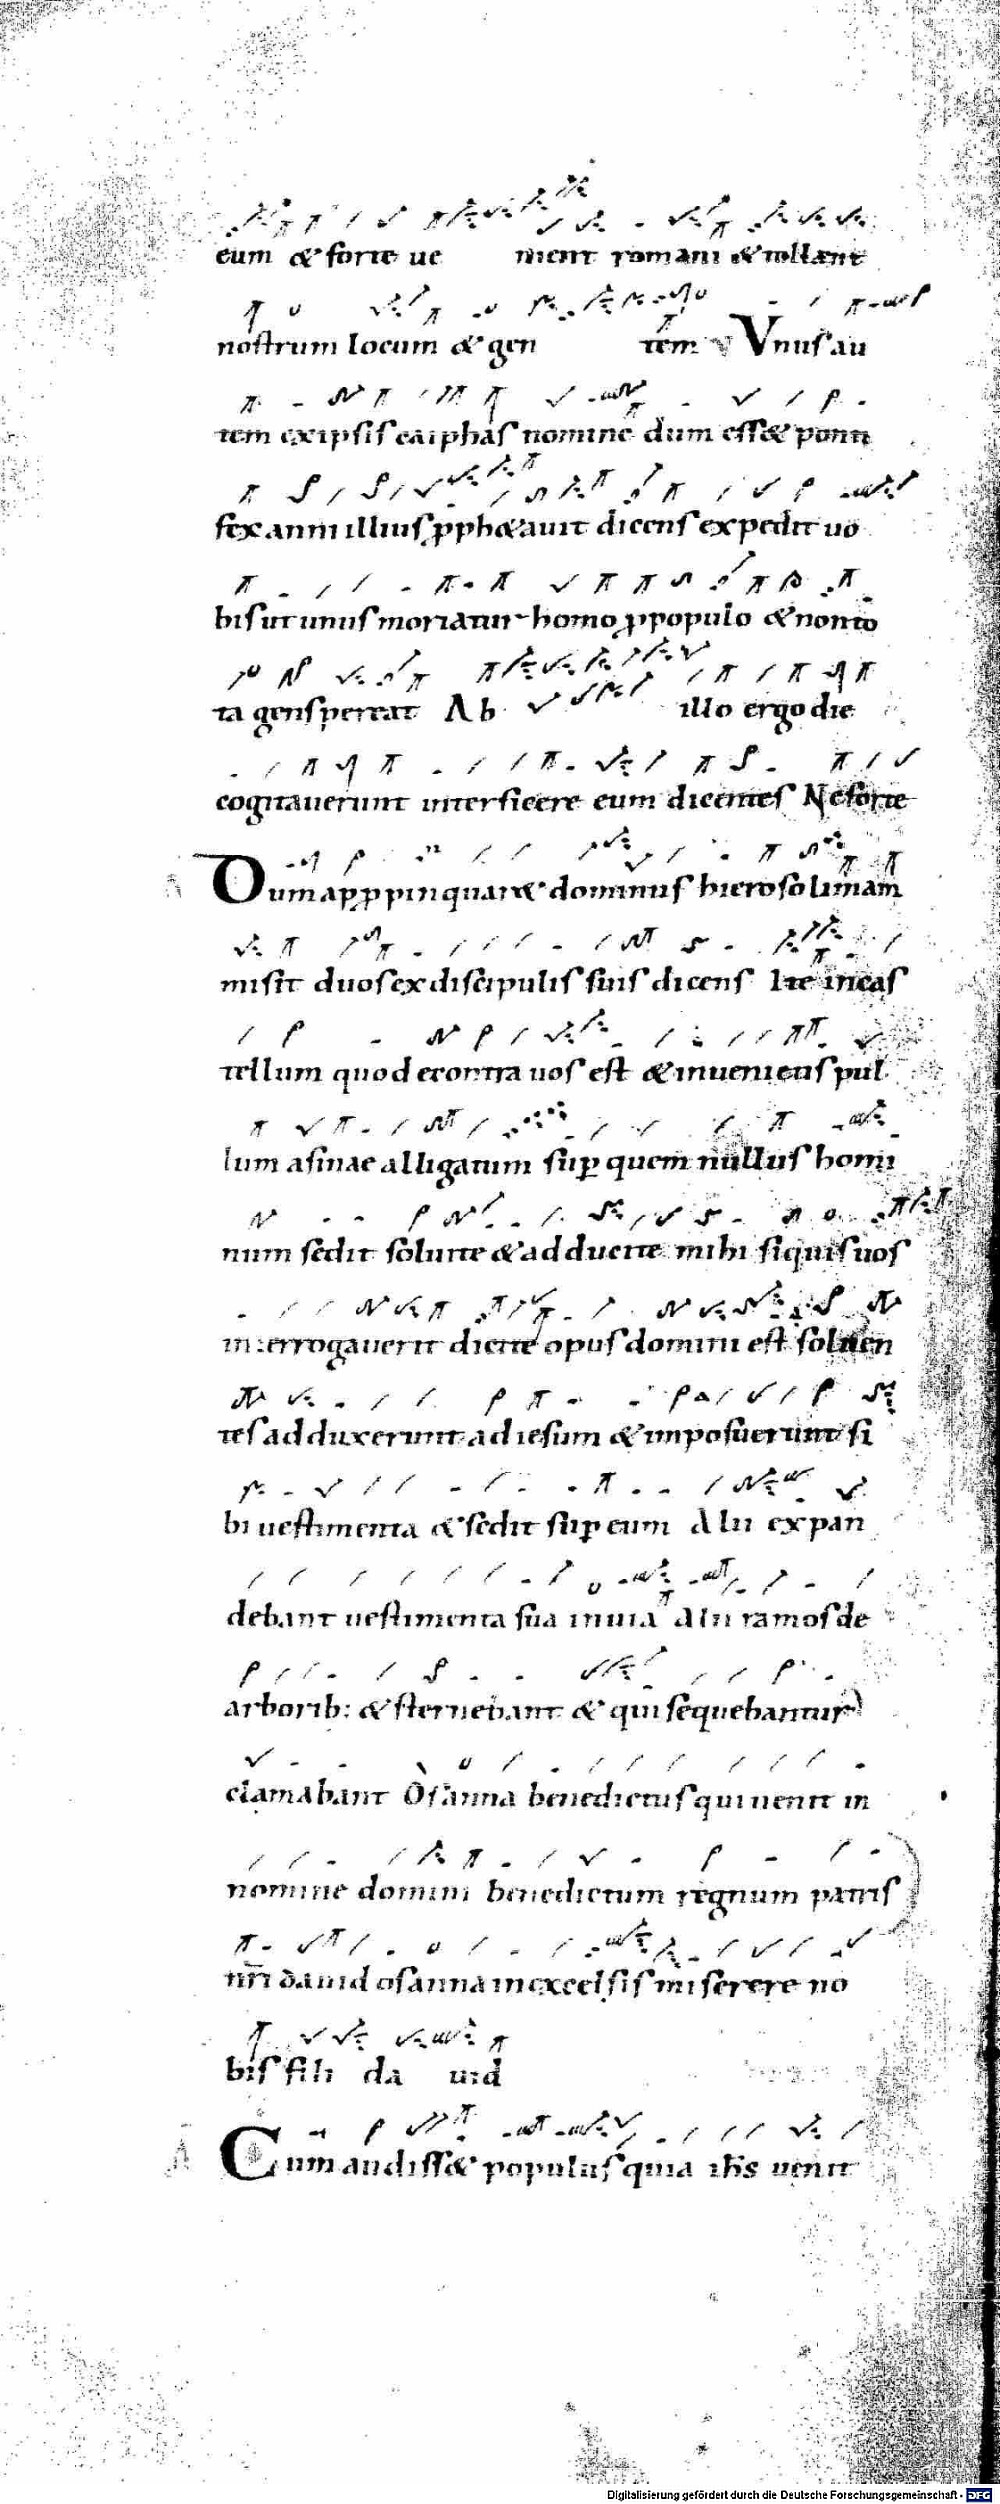 eum & forte ue nient romani & tollænt
nostrum locum & gen tem V Vnus au
tem ex ipsis caiphas nomine dum ess& ponti
fex anni illius p̱ph&auit dicens expedit uo
bis ut unus moriatur homo p̱populo & non to
ta gens pereat Ab illo ergo die
cogitauerunt interficere eum dicentes Ne forte
A Dum ap̱p̱pinquar& dominus hierosolimam
misit duos ex discipulis suis dicens Ite in cas
tellum quod econtra uos est & inuenietis pul
lum asinae alligatum sup̱ quem nullus homi
num sedit soluite & adducite mihi si quis uos
interrogauerit dicite opus domini est soluen
tes adduxerunt ad iesum & imposuerunt si
bi uestimenta & sedit sup̱ eum Alii expan
debant uestimenta sua in uia Alii ramos de
arborib: & sternebant & qui sequebantur
clamabant Osanna benedictus qui uenit in
nomine domini benedictum regnum patris
nr̄i dauid osanna in excelsis miserere no
bis fili da uid
A Cum audiss& populus quia ih̄s uenit
Digitalisierung gefördert durch die Deutsche Forschungsgemeinschaft - DFG